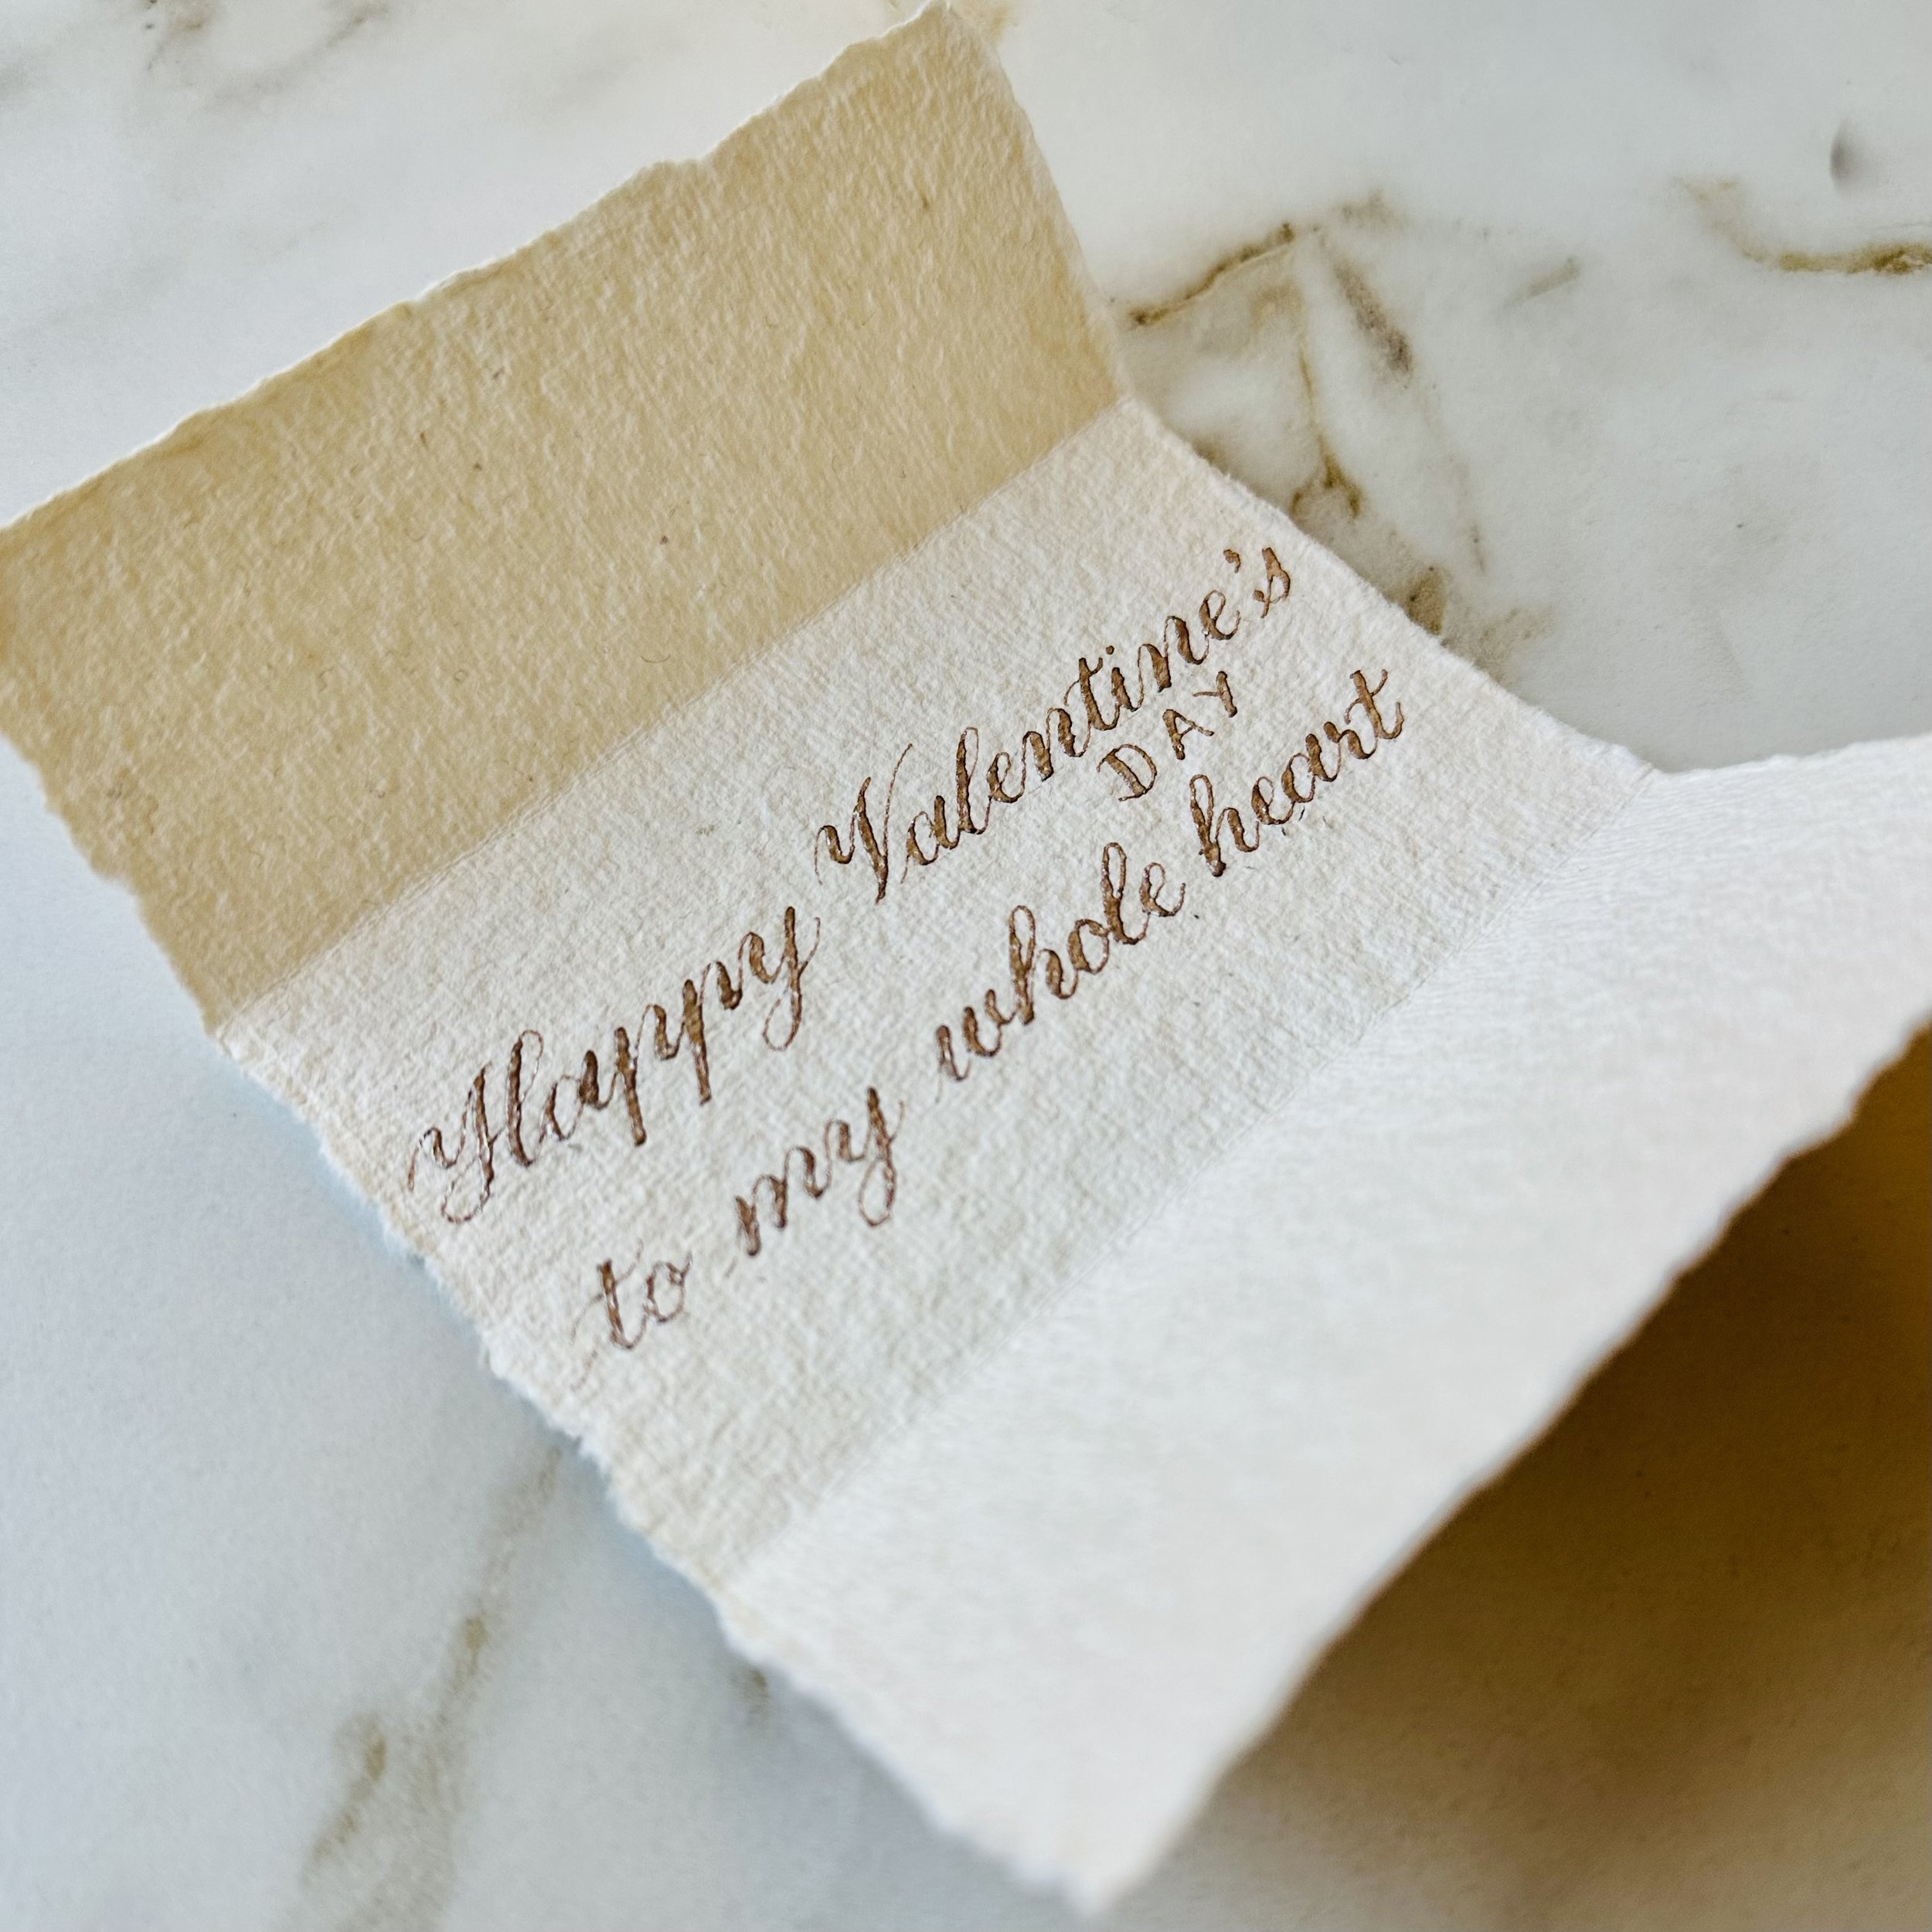 Happy Valentine's
DAY
to my whole heart